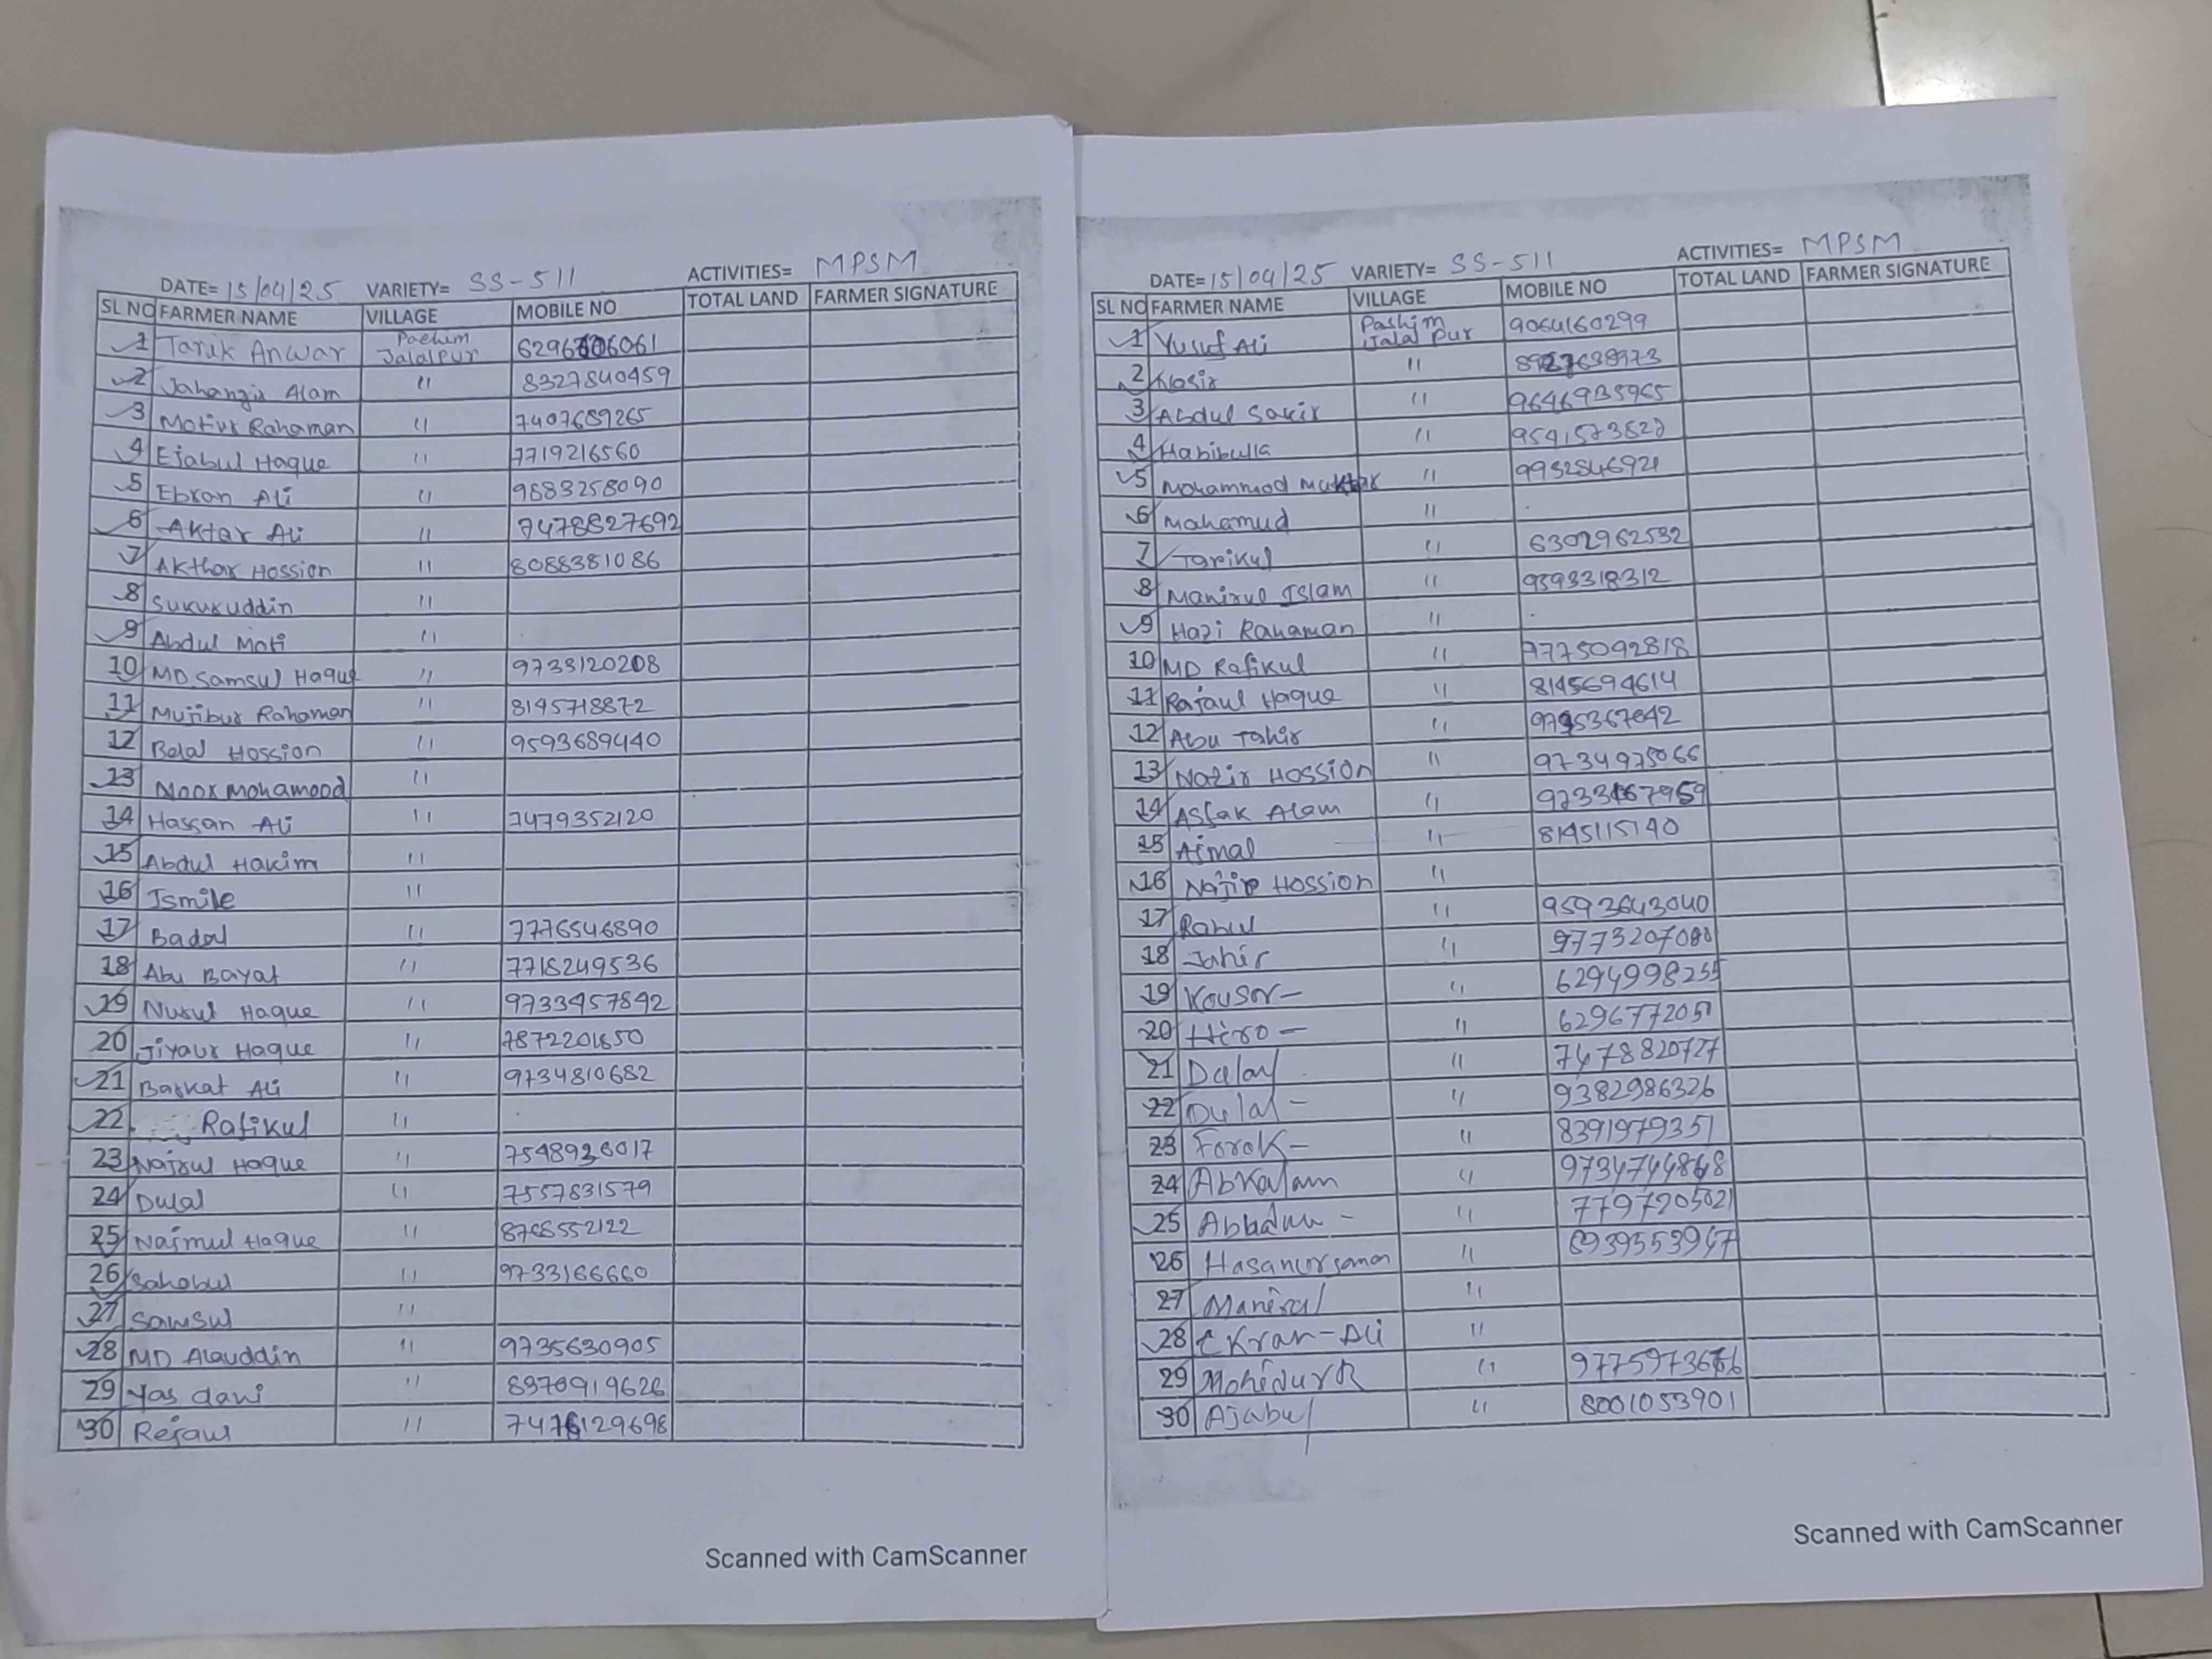 DATE= 15/04/25 VARIETY= SS-511 ACTIVITIES= MPSM
SL NO FARMER NAME VILLAGE MOBILE NO TOTAL LAND FARMER SIGNATURE
1 Tarik Anwar Pachim Jalalpur
2 Jahangir Alam " 8327840459
3 Motiur Rahaman " 7407689265
4 Ejabul Haque " 7719216560
5 Ebran Ali " 9883258090
6 Aktar Ali " 7478827692
7 Akthar Hossion " 8088381086
8 Sukuruddin "
9 Abdul Moti "
10 MD Samsul Haque " 9733120208
11 Mujibur Rahaman " 8145718872
12 Belal Hossion " 9593689440
13 Noor Mohamood "
14 Hassan Ali " 7479352120
15 Abdul Hakim "
16 Ismile "
17 Badal " 7776546890
18 Abu Bayat " 7718249536
19 Nurul Haque " 9733457842
20 Jiyaur Haque "
21 Barkat Ali " 9734810682
22 Rafikul "
23 Najrul Haque " 7548936017
24 Dulal " 7557831579
25 Najmul Haque " 8768552122
26 Sahabul " 9733166660
27 Samsul "
28 MD Alauddin " 9735630905
29 Yas dani " 8370919626
30 Rejaul "
Scanned with CamScanner
DATE= 15/04/25 VARIETY= SS-511 ACTIVITIES= MPSM
SL NO FARMER NAME VILLAGE MOBILE NO TOTAL LAND FARMER SIGNATURE
1 Yusuf Ali Pashim Jalal pur 9064160299
2 Nasir "
3 Abdul Sakir "
4 Habibulla " 9541573827
5 Mohammod Muktar " 9932546921
6 Mahamud "
7 Tarikul " 6302962532
8 Manirul Islam " 9593318312
9 Hazi Rahaman "
10 MD Rafikul " 9775092818
11 Rajaul Haque " 8145694614
12 Abu Tahir "
13 Nazir Hossion " 9734975066
14 Asfak Alam "
15 Ajmal " 8145115140
16 Najir Hossion "
17 Rahul " 9593643040
18 Jahir "
19 Kousor - "
20 Hiro - " 6296772051
21 Dalal " 7478820727
22 Dulal - " 9382986326
23 Forok - " 8391979351
24 Abkalam "
25 " 7797205021
26 Hasanurjaman "
27 Manirul "
28 Ekran - Ali "
29 Mohidur R "
30 Ajabul " 8001053901
Scanned with CamScanner